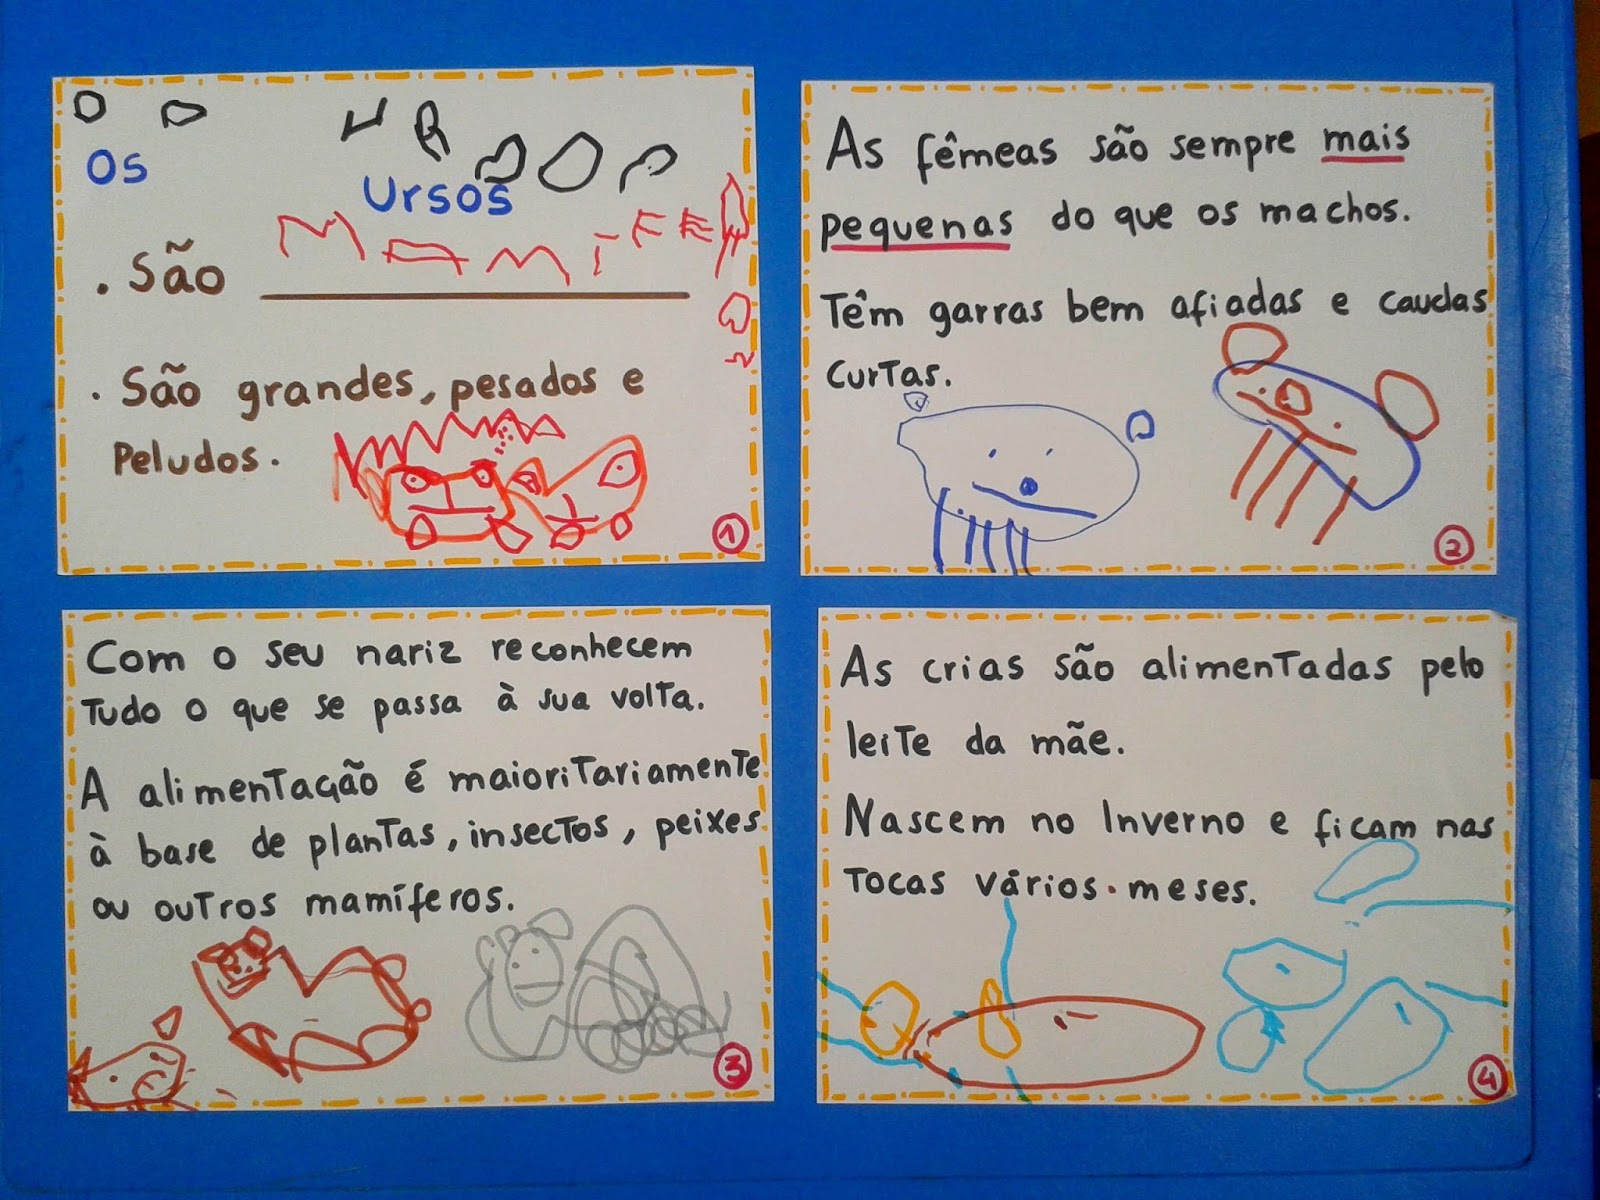 Os
Ursos
. São MAMIFEROS
. São grandes, pesados e
Peludos.
1
As fêmeas são sempre mais
pequenas do que os machos.
Têm garras bem afiadas e caudas
curtas.
2
Com o seu nariz reconhecem
tudo o que se passa à sua volta.
A alimentação é maioritariamente
à base de plantas, insectos, peixes
ou outros mamíferos.
3
As crias são alimentadas pelo
leite da mãe.
Nascem no Inverno e ficam nas
tocas vários meses.
4